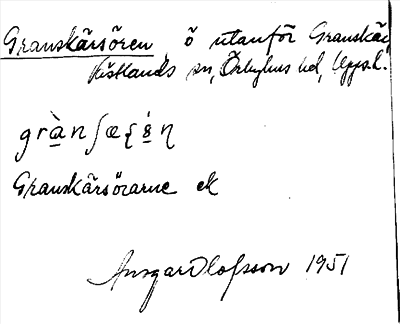 Granskärsören, ö utanför Granskär,
Västlands sn, Örbyhus hd, Upps.l.
Granskärsörarne ek
Ansgar Olofsson 1951